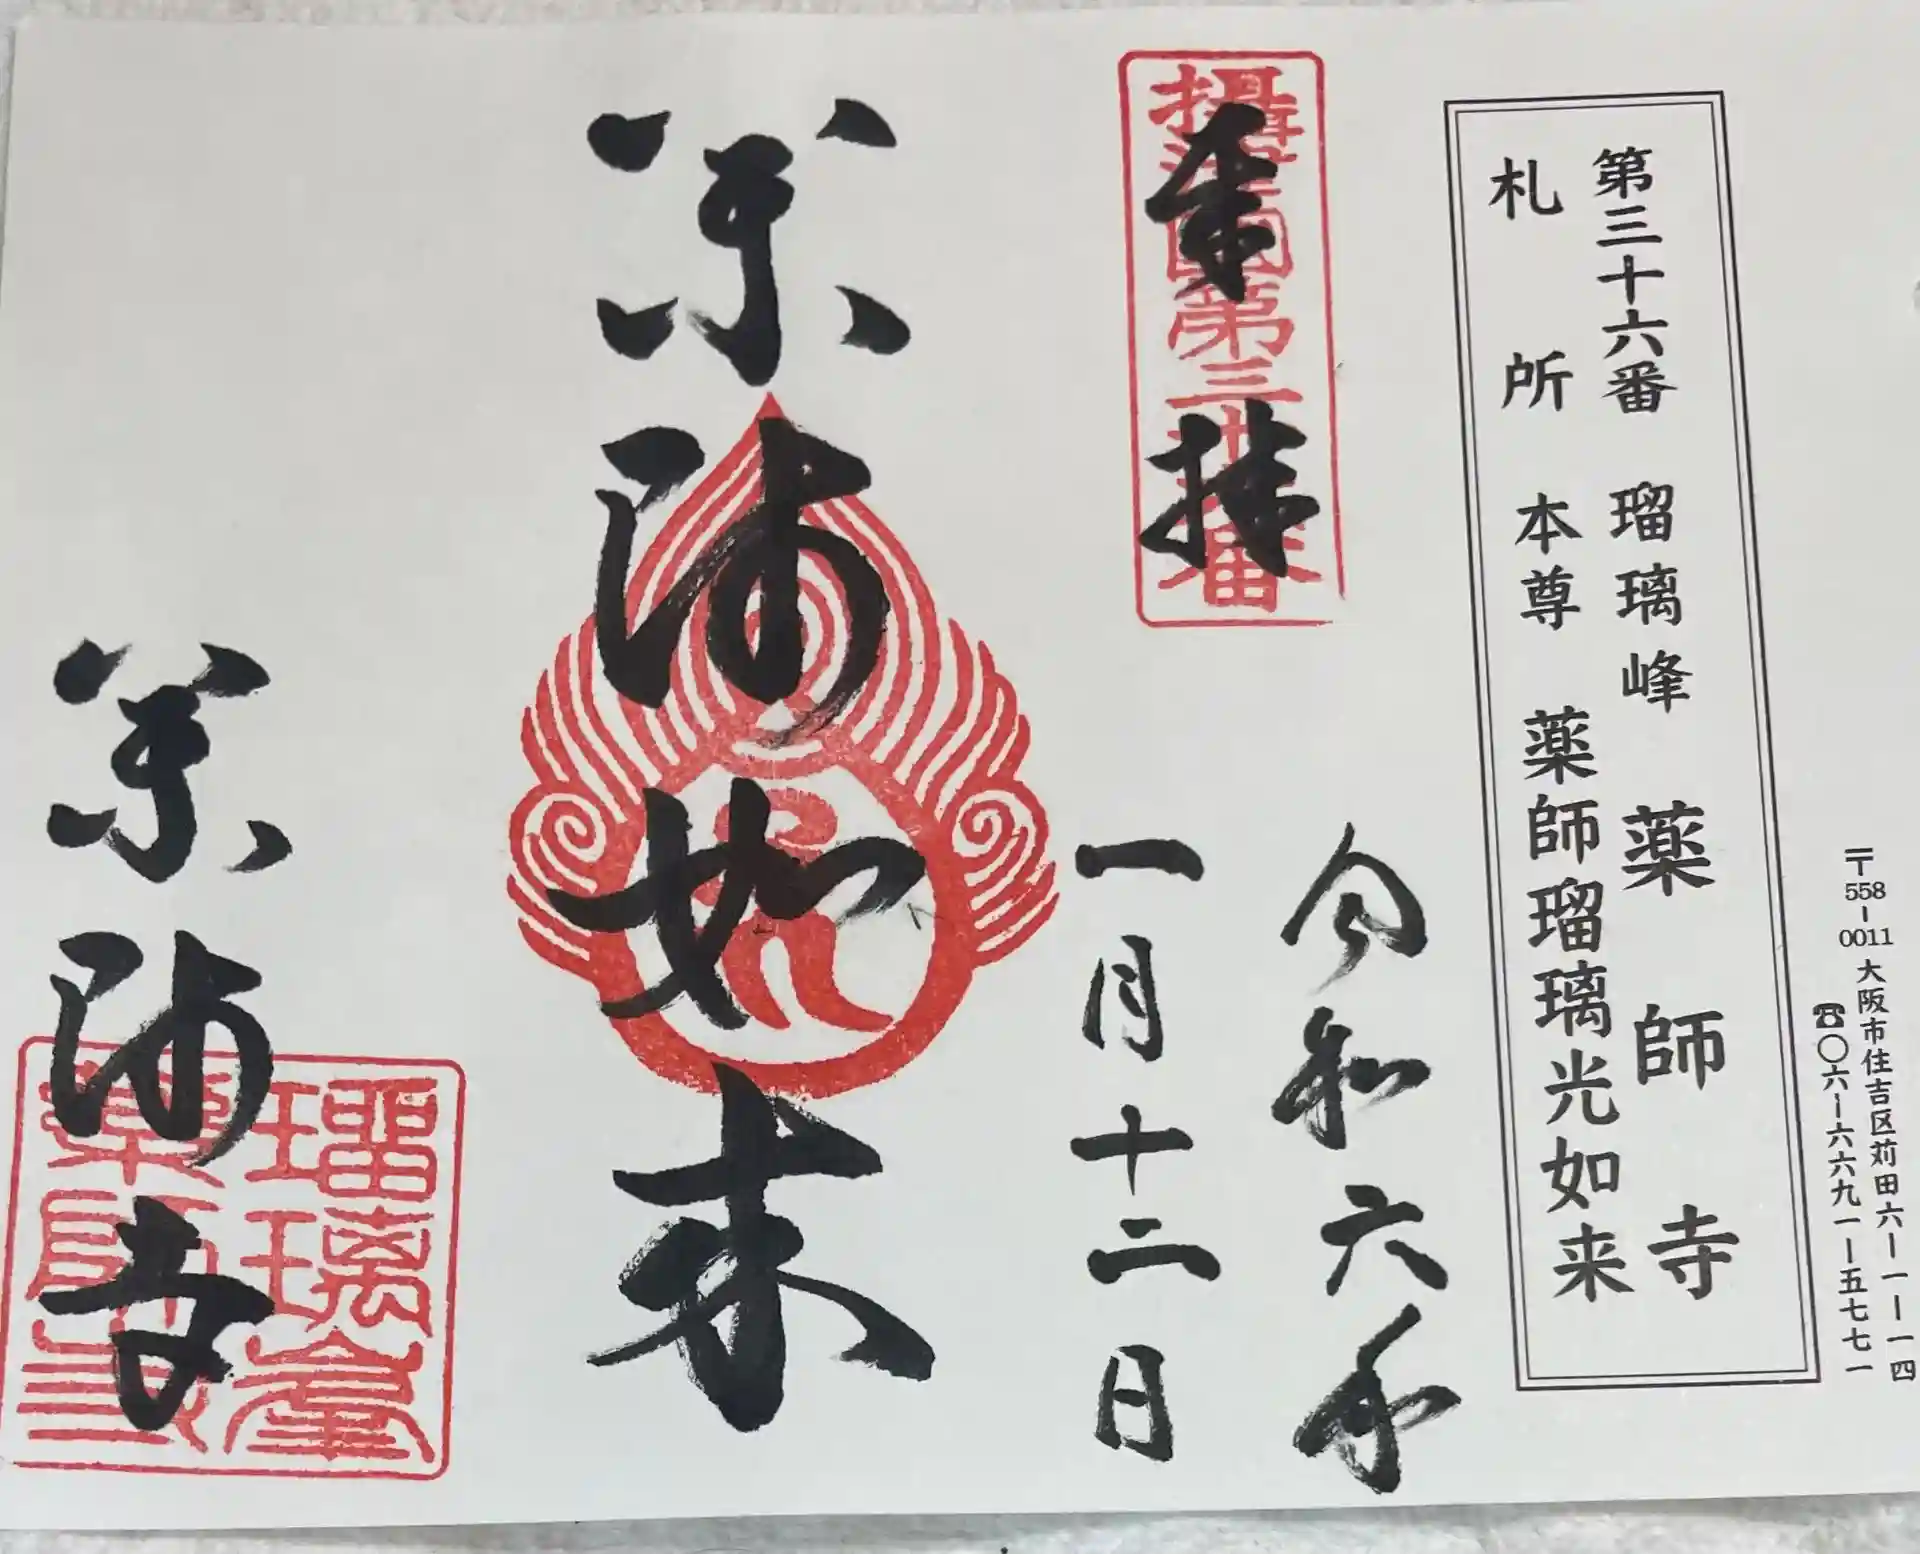 〒558-0011 大阪市住吉区苅田六ー一ー一四
☎〇六ー六六九一ー五七七一
第三十六番 瑠璃峰 薬師寺
札所 本尊 薬師瑠璃光如来
攝津国第三十六番
奉拝
令和六年
一月十二日
薬師如来
薬師寺
瑠璃峯
薬師寺